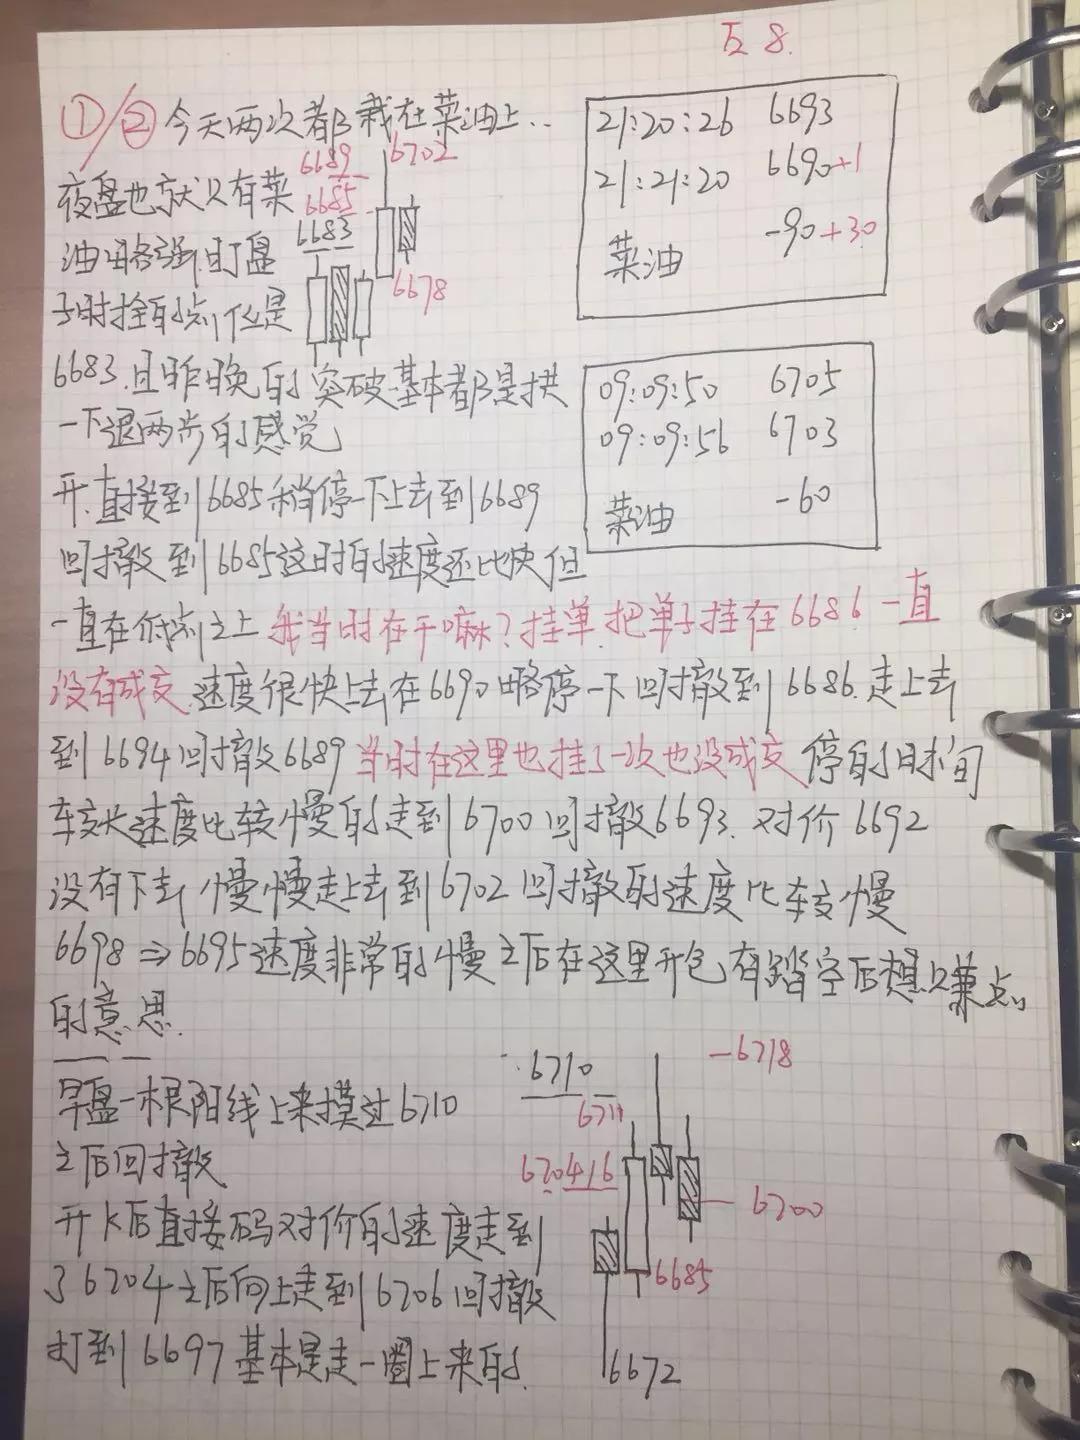 五 8.
①/② 今天两次都栽在菜油上..
21:20:26 6693
21:21:20 6690+1
-90+30
菜油
夜盘也就只有菜
6689 6702
6685
油略强.盯盘
6683
6678
子时拴的点位是
6683.且昨晚的突破基本都是拱
09:09:50 6705
一下退两步的感觉
09:09:56 6703
-60
菜油
开.直接到6685稍停一下上去到6689
回撤到6685这时的速度还比快但
一直在低点之上 我当时在干嘛?挂单.把单子挂在6686.一直
没有成交.速度很快上去在6690略停一下回撤到6686.走上去
到6694回撤6689当时在这里也挂了一次也没成交 停的时间
较长速度比较慢的走到6700回撤6693.对价6692
没有下去 慢慢走上去到6702回撤的速度比较慢
6698⇒6695速度非常的慢之后在这里开仓有踏空后想只赚点
的意思.
早盘一根阳线上来摸过6710
6710
6711
-6718
之后回撤
6704/6
6700
开K后直接码对价的速度走到
了6704之后向上走到6706回撤
6685
打到6697基本是走一圈上来的.
6672